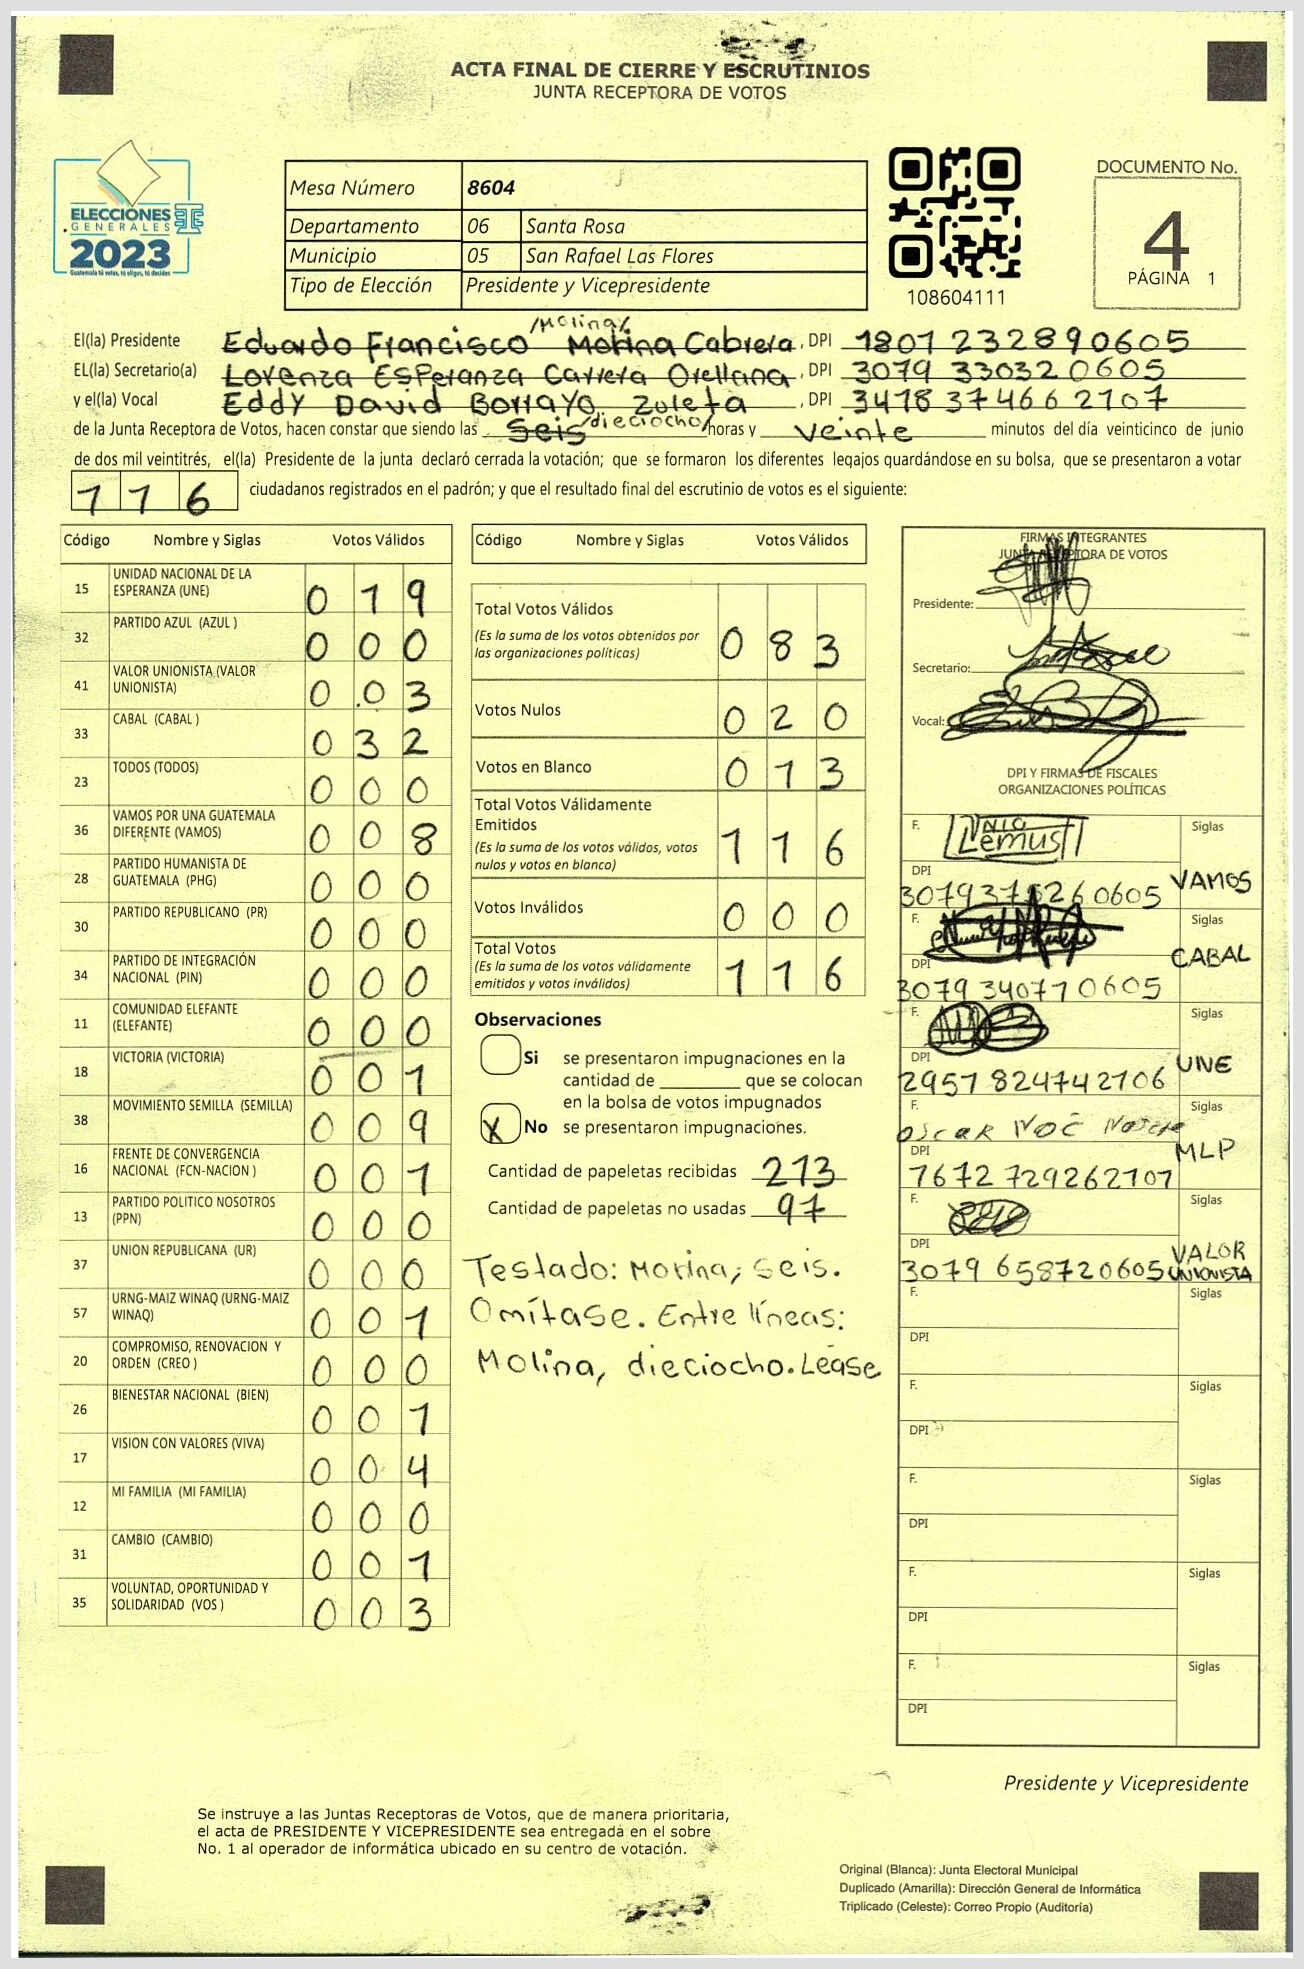 ACTA FINAL DE CIERRE Y ESCRUTINIOS
JUNTA RECEPTORA DE VOTOS
ELECCIONES
GENERALES
2023
Guatemala tú votas, tú eliges, tú decides
Mesa Número 8604
Departamento 06 Santa Rosa
Municipio 05 San Rafael Las Flores
Tipo de Elección Presidente y Vicepresidente
108604111
DOCUMENTO No.
4
PÁGINA 1
/Molina/
El(la) Presidente Eduardo Francisco Morina Cabrera, DPI 1801 23289 0605
EL(la) Secretario(a) Lorenza Esperanza Carrera Orellana, DPI 3079 33032 0605
y el(la) Vocal Eddy David Borrayo Zuleta, DPI 3418 37466 2107
de la Junta Receptora de Votos, hacen constar que siendo las seis /dieciocho/ horas y veinte minutos del día veinticinco de junio
de dos mil veintitrés, el(la) Presidente de la junta declaró cerrada la votación; que se formaron los diferentes legajos guardándose en su bolsa, que se presentaron a votar
116 ciudadanos registrados en el padrón; y que el resultado final del escrutinio de votos es el siguiente:
Código Nombre y Siglas Votos Válidos
15 UNIDAD NACIONAL DE LA ESPERANZA (UNE) 0 1 9
32 PARTIDO AZUL (AZUL ) 0 0 0
41 VALOR UNIONISTA (VALOR UNIONISTA) 0 0 3
33 CABAL (CABAL ) 0 3 2
23 TODOS (TODOS) 0 0 0
36 VAMOS POR UNA GUATEMALA DIFERENTE (VAMOS) 0 0 8
28 PARTIDO HUMANISTA DE GUATEMALA (PHG) 0 0 0
30 PARTIDO REPUBLICANO (PR) 0 0 0
34 PARTIDO DE INTEGRACIÓN NACIONAL (PIN) 0 0 0
11 COMUNIDAD ELEFANTE (ELEFANTE) 0 0 0
18 VICTORIA (VICTORIA) 0 0 1
38 MOVIMIENTO SEMILLA (SEMILLA) 0 0 9
16 FRENTE DE CONVERGENCIA NACIONAL (FCN-NACION ) 0 0 1
13 PARTIDO POLITICO NOSOTROS (PPN) 0 0 0
37 UNION REPUBLICANA (UR) 0 0 0
57 URNG-MAIZ WINAQ (URNG-MAIZ WINAQ) 0 0 1
20 COMPROMISO, RENOVACION Y ORDEN (CREO ) 0 0 0
26 BIENESTAR NACIONAL (BIEN) 0 0 1
17 VISION CON VALORES (VIVA) 0 0 4
12 MI FAMILIA (MI FAMILIA) 0 0 0
31 CAMBIO (CAMBIO) 0 0 1
35 VOLUNTAD, OPORTUNIDAD Y SOLIDARIDAD (VOS ) 0 0 3
Código Nombre y Siglas Votos Válidos
Total Votos Válidos 0 8 3
(Es la suma de los votos obtenidos por
las organizaciones políticas)
Votos Nulos 0 2 0
Votos en Blanco 0 1 3
Total Votos Válidamente
Emitidos 1 1 6
(Es la suma de los votos válidos, votos
nulos y votos en blanco)
Votos Inválidos 0 0 0
Total Votos 1 1 6
(Es la suma de los votos válidamente
emitidos y votos inválidos)
Observaciones
Si se presentaron impugnaciones en la
cantidad de ________ que se colocan
en la bolsa de votos impugnados
X No se presentaron impugnaciones.
Cantidad de papeletas recibidas 213
Cantidad de papeletas no usadas 97
Testado: Morina, seis.
Omítase. Entre líneas:
Molina, dieciocho. Léase
FIRMAS INTEGRANTES
JUNTA RECEPTORA DE VOTOS
Presidente:
Secretario:
Vocal:
DPI Y FIRMAS DE FISCALES
ORGANIZACIONES POLÍTICAS
F. Lemus Siglas
DPI VAMOS
F. Siglas
DPI CABAL
3079 34077 0605
F. Siglas
DPI UNE
2957 82474 2106
F. Oscar Noé Siglas
DPI MLP
7672 72926 2107
F. Siglas
DPI VALOR
3079 65872 0605 UNIONISTA
F. Siglas
DPI
F. Siglas
DPI
F. Siglas
DPI
F. Siglas
DPI
F. Siglas
DPI
Presidente y Vicepresidente
Se instruye a las Juntas Receptoras de Votos, que de manera prioritaria,
el acta de PRESIDENTE Y VICEPRESIDENTE sea entregada en el sobre
No. 1 al operador de informática ubicado en su centro de votación.
Original (Blanca): Junta Electoral Municipal
Duplicado (Amarilla): Dirección General de Informática
Triplicado (Celeste): Correo Propio (Auditoría)